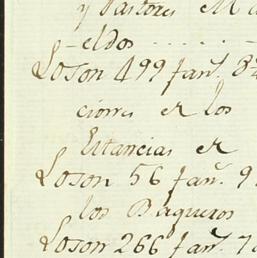 y Pastores en
eldos
Loson 499 fan.s 8
ciones en los
Estancias en
Loson 56 fan.s 9
los Baqueros
Loson 266 fan.s 7